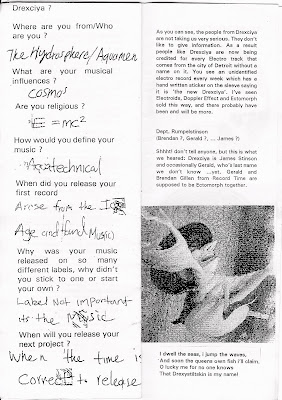 Drexciya ?
Where are you from/Who
are you ?
The Hydrosphere/Aquamen
What are your musical
influences ?
cosmo
Are you religious ?
E = mc²
How would you define
your music ?
Aquatechnical
When did you release your
first record
Arise from the Ice
Age and Hand Music)
Why was your music
released on so many
different labels, why didn't
you stick to one or start
your own ?
Label Not important
its the Music
When will you release your
next project ?
When the time is
Correct to release
As you can see, the people from Drexciya
are not taking us very serious. They don't
like to give information. As a result
people like Drexciya are now being
credited for every Electro track that
comes from the city of Detroit without a
name on it. You see an unidentified
electro record every week which has a
hand written sticker on the sleeve saying
it is 'the new Drexciya'. I've seen
Electroids, Doppler Effect and Ectomorph
sold this way, and there probably have
been and will be more.
Dept. Rumpelstinson
(Brendan ?, Gerald ?, ... James ?)
Shhht! don't tell anyone, but this is what
we heard: Drexciya is James Stinson
and occasionally Gerald, who's last name
we don't know ...yet. Gerald and
Brendan Gillen from Record Time are
supposed to be Ectomorph together.
I dwell the seas, I jump the waves,
And soon the queens own fish I'll claim,
O lucky me for no one knows
That Drexystiltskin is my name!